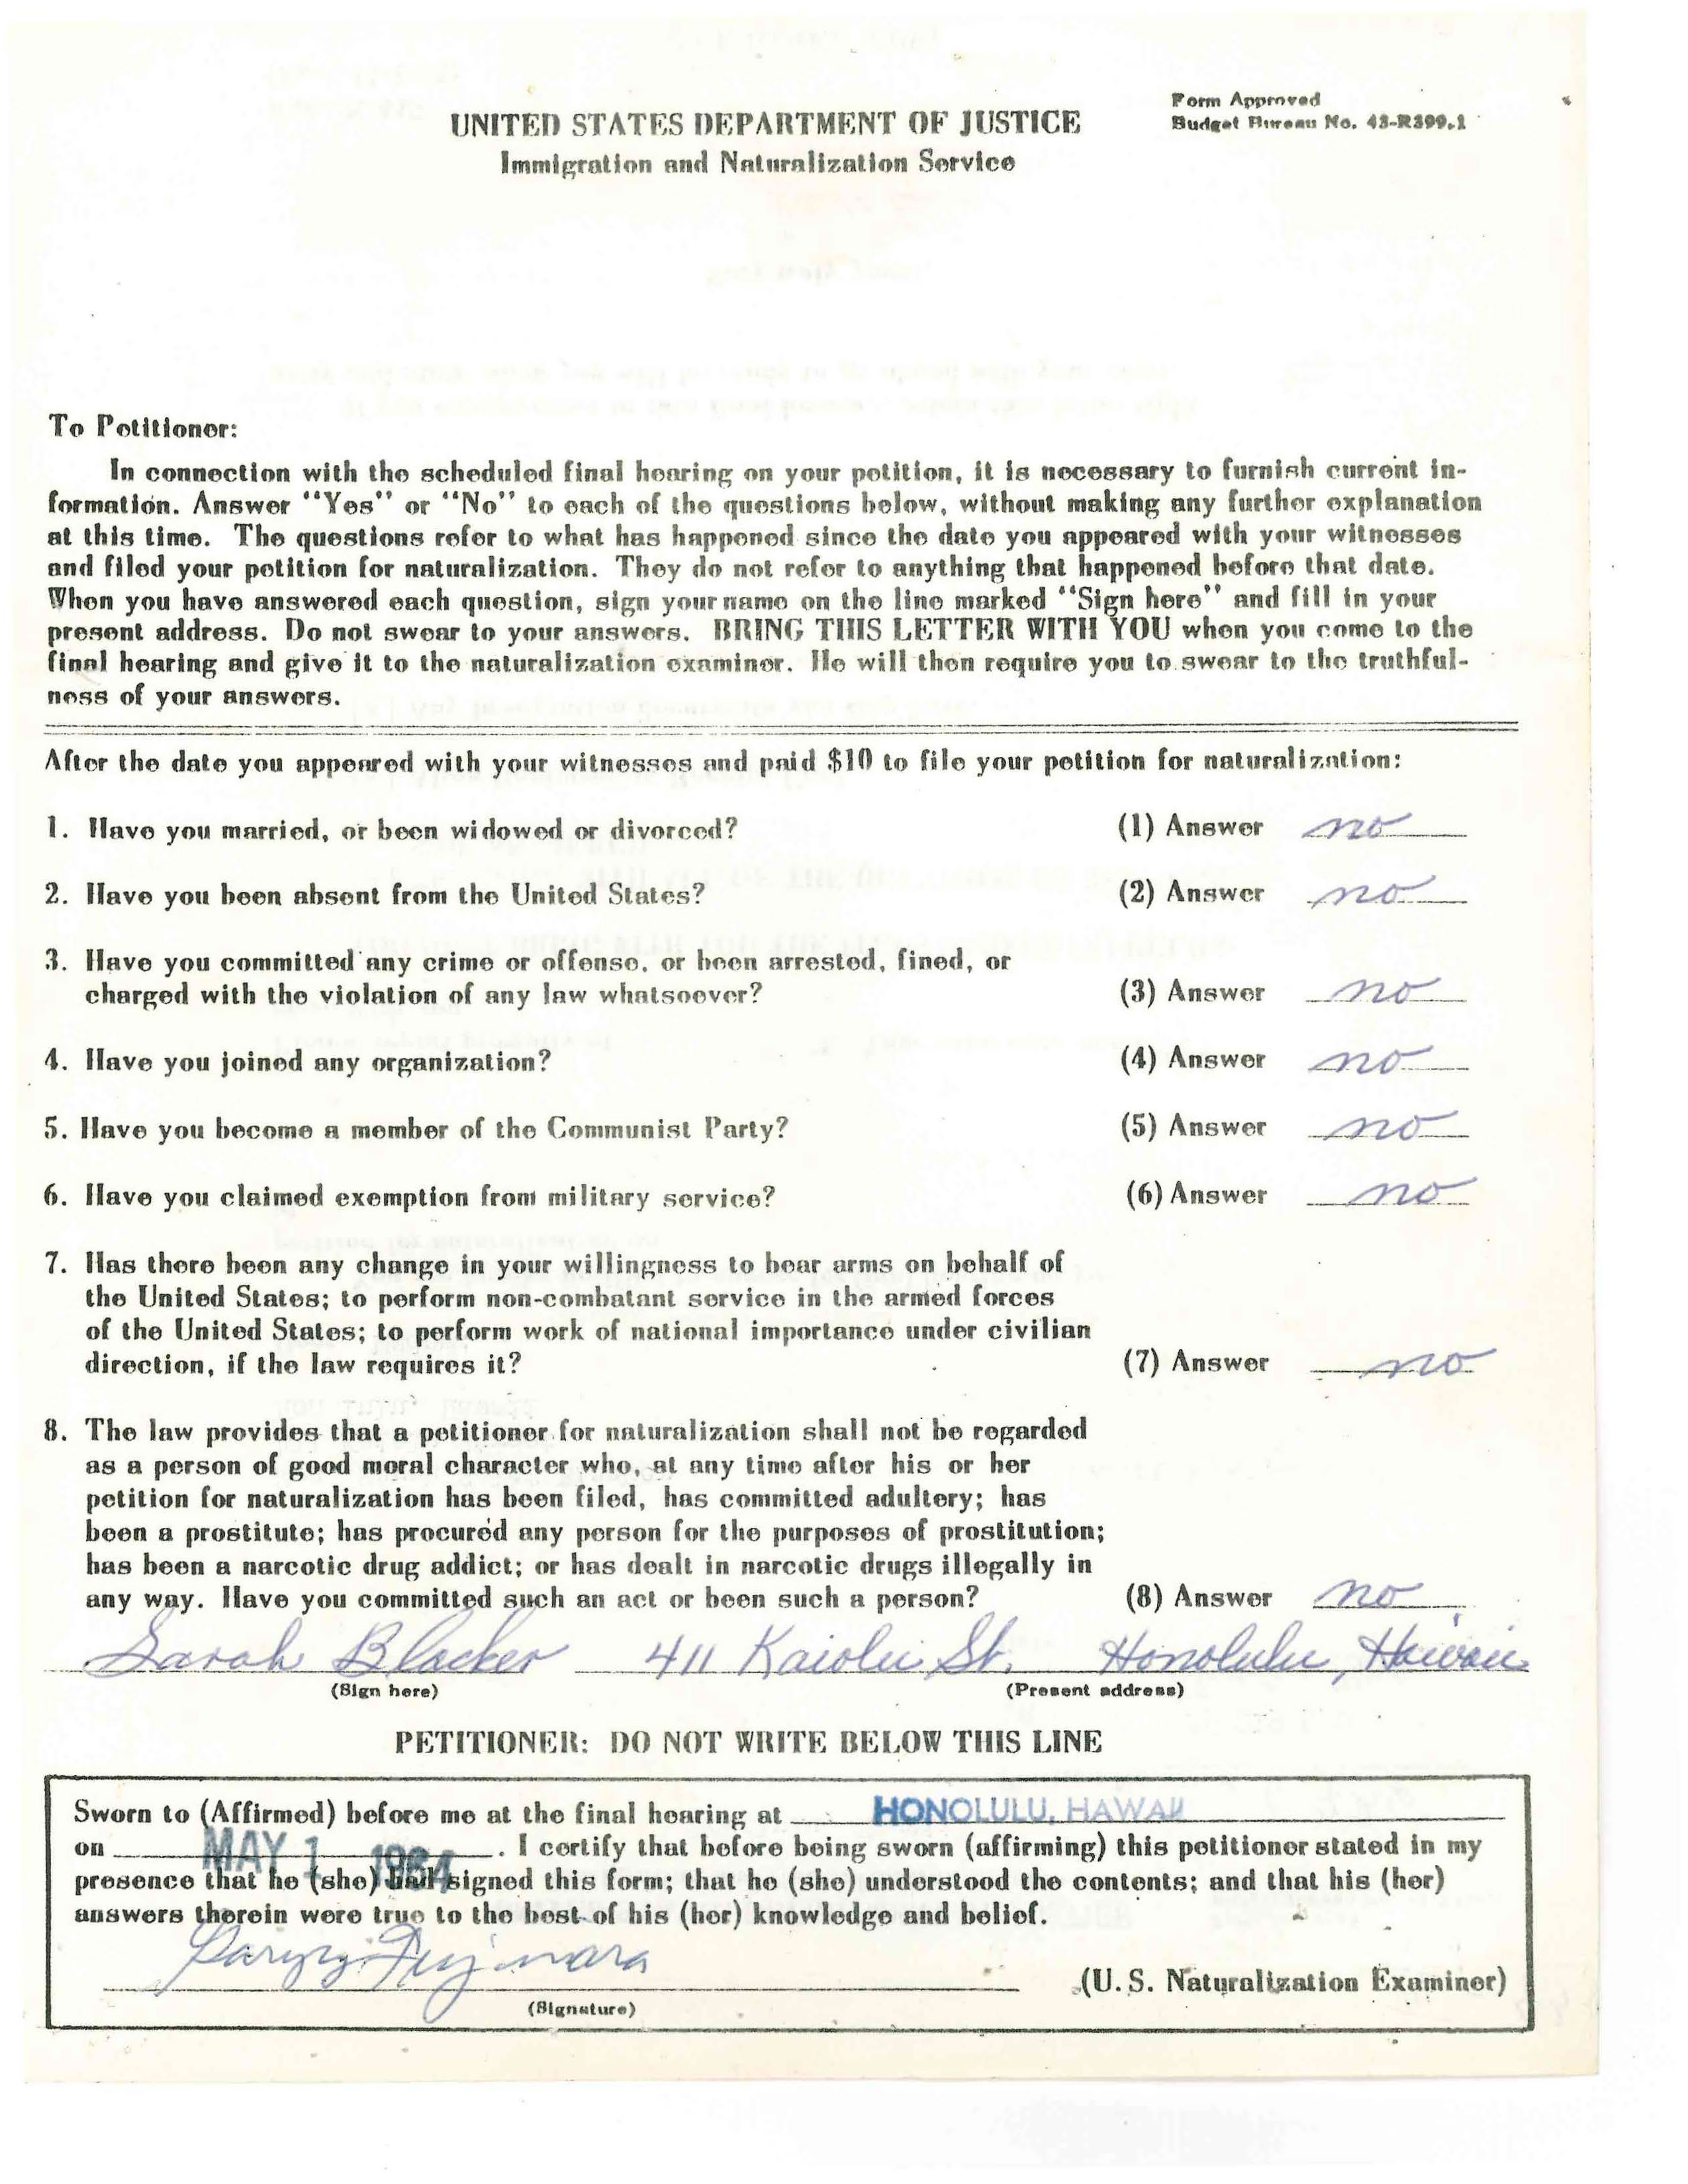 UNITED STATES DEPARTMENT OF JUSTICE
Immigration and Naturalization Service
Form Approved
Budget Bureau No. 43-R399.1
To Petitioner:
In connection with the scheduled final hearing on your petition, it is necessary to furnish current in-
formation. Answer "Yes" or "No" to each of the questions below, without making any further explanation
at this time. The questions refer to what has happened since the date you appeared with your witnesses
and filed your petition for naturalization. They do not refer to anything that happened before that date.
When you have answered each question, sign your name on the line marked "Sign here" and fill in your
present address. Do not swear to your answers. BRING THIS LETTER WITH YOU when you come to the
final hearing and give it to the naturalization examiner. He will then require you to swear to the truthful-
ness of your answers.
After the date you appeared with your witnesses and paid $10 to file your petition for naturalization:
1. Have you married, or been widowed or divorced? (1) Answer no
2. Have you been absent from the United States? (2) Answer no
3. Have you committed any crime or offense, or been arrested, fined, or
charged with the violation of any law whatsoever? (3) Answer no
4. Have you joined any organization? (4) Answer no
5. Have you become a member of the Communist Party? (5) Answer no
6. Have you claimed exemption from military service? (6) Answer no
7. Has there been any change in your willingness to bear arms on behalf of
the United States; to perform non-combatant service in the armed forces
of the United States; to perform work of national importance under civilian
direction, if the law requires it? (7) Answer no
8. The law provides that a petitioner for naturalization shall not be regarded
as a person of good moral character who, at any time after his or her
petition for naturalization has been filed, has committed adultery; has
been a prostitute; has procured any person for the purposes of prostitution;
has been a narcotic drug addict; or has dealt in narcotic drugs illegally in
any way. Have you committed such an act or been such a person? (8) Answer no
Sarah Blacker 411 Kaiolu St. Honolulu, Hawaii
(Sign here) (Present address)
PETITIONER: DO NOT WRITE BELOW THIS LINE
Sworn to (Affirmed) before me at the final hearing at HONOLULU, HAWAII
on MAY 1 1964. I certify that before being sworn (affirming) this petitioner stated in my
presence that he (she) had signed this form; that he (she) understood the contents; and that his (her)
answers therein were true to the best of his (her) knowledge and belief.
(U. S. Naturalization Examiner)
(Signature)